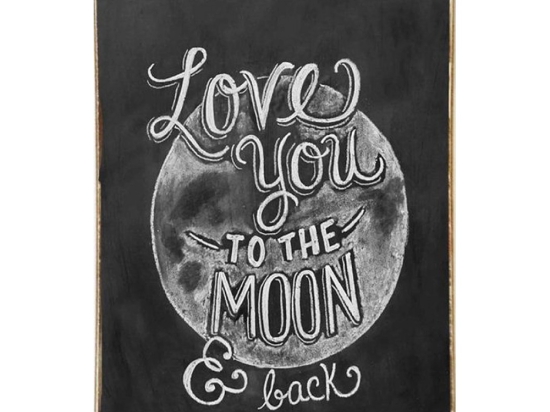 Love
you
TO THE
MOON
& back